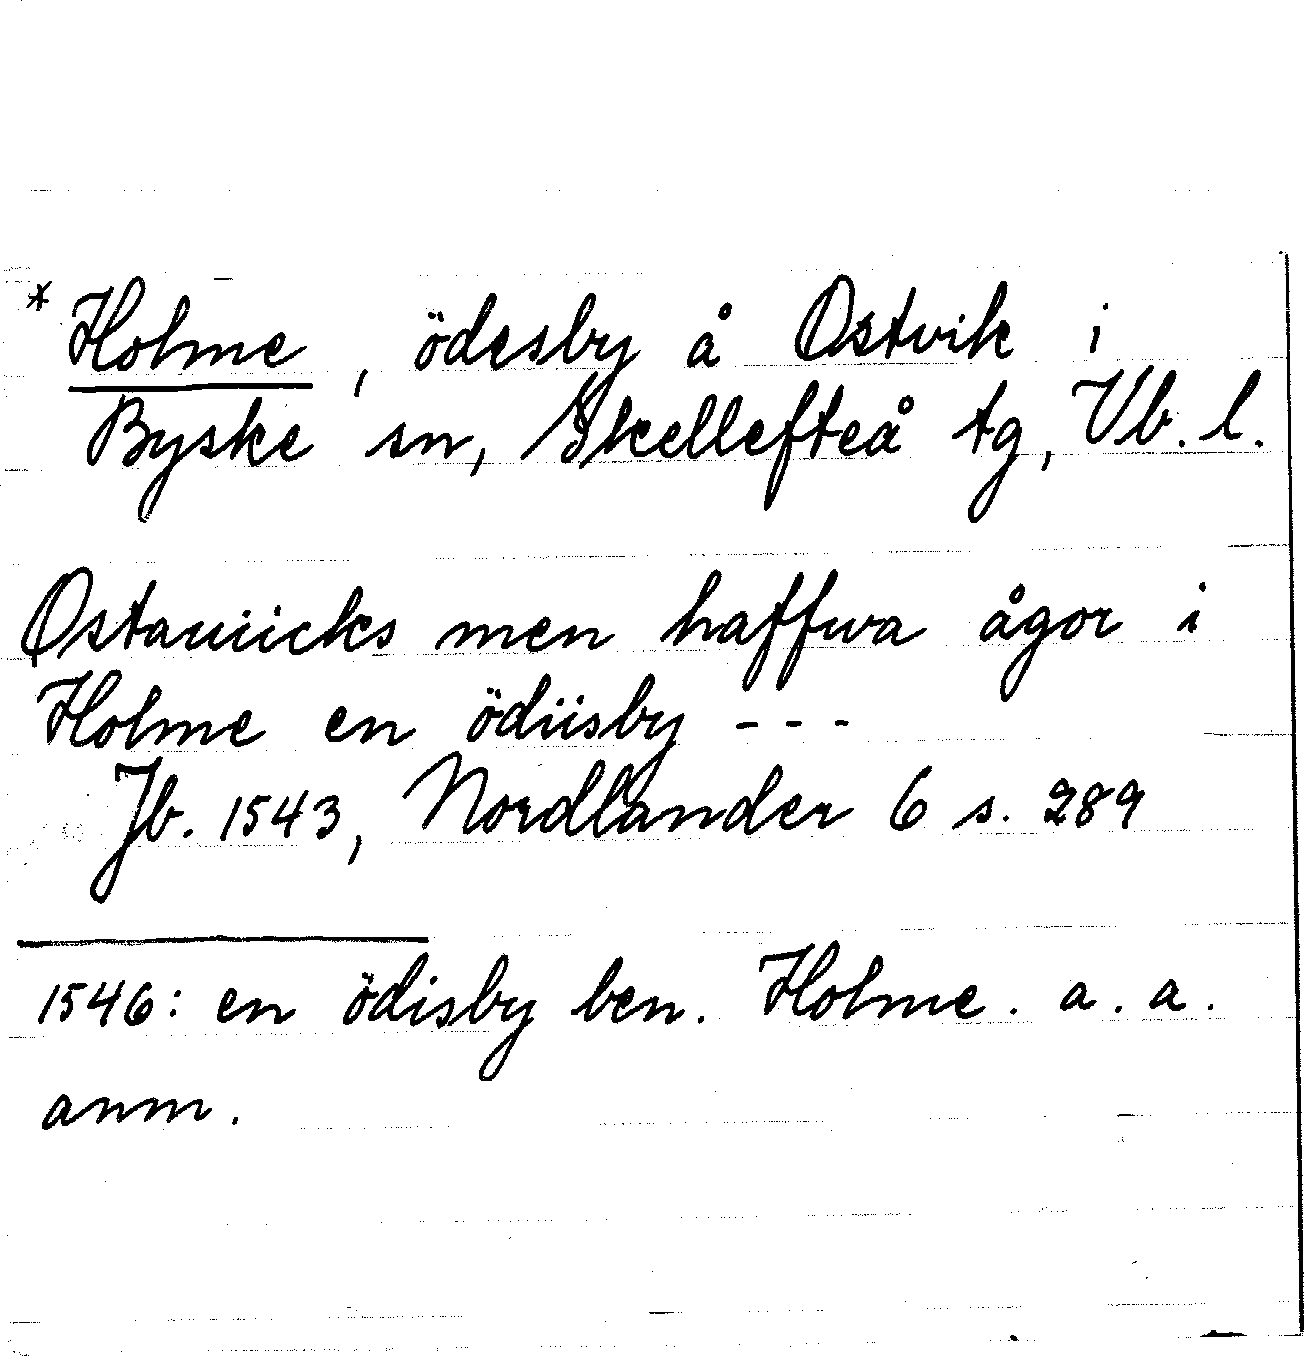 * Holme, ödesby å Ostvik i
Byske sn, Skellefteå tg, Vb. l.
Ostauiicks men haffwa ågor i
Holme en ödiisby - - -
Jb. 1543, Nordlander 6 s. 289
1546: en ödisby ben. Holme. a. a.
anm.